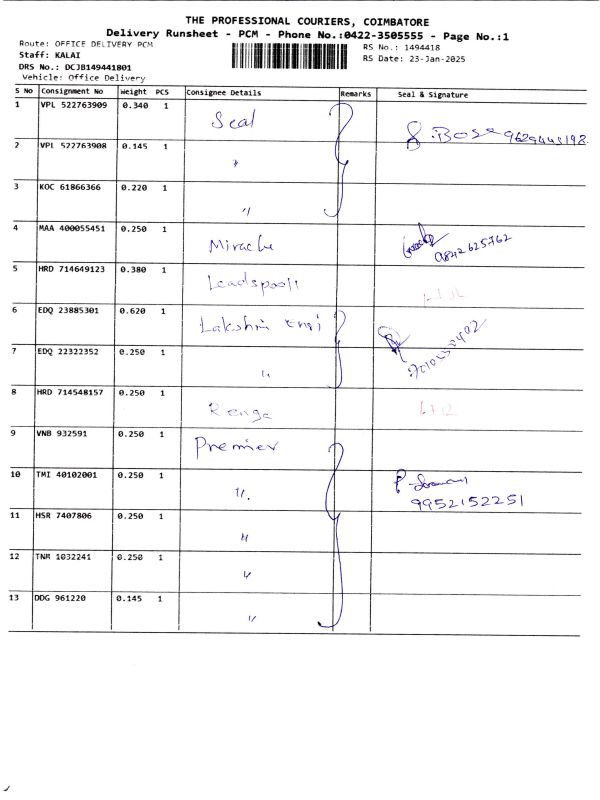 THE PROFESSIONAL COURIERS, COIMBATORE
Delivery Runsheet - PCM - Phone No.:0422-3505555 - Page No.:1
Route: OFFICE DELIVERY PCM
RS No.: 1494418
Staff: KALAI
RS Date: 23-Jan-2025
DRS No.: DCJB149441801
Vehicle: Office Delivery
S No Consignment No Weight PCS Consignee Details Remarks Seal & Signature
1 VPL 522763909 0.340 1 Seal
S. BOSE 9629445198
2 VPL 522763908 0.145 1 "
3 KOC 61866366 0.220 1 "
4 MAA 400055451 0.250 1 Miracle
9842625762
5 HRD 714649123 0.380 1
6 EDQ 23885301 0.620 1 Lakshmi
7 EDQ 22322352 0.250 1 "
8 HRD 714548157 0.250 1 Renga
9 VNB 932591 0.250 1 Premier
10 TMI 40102001 0.250 1 "
9952152251
11 HSR 7407806 0.250 1 "
12 TNR 1032241 0.250 1 "
13 DDG 961220 0.145 1 "